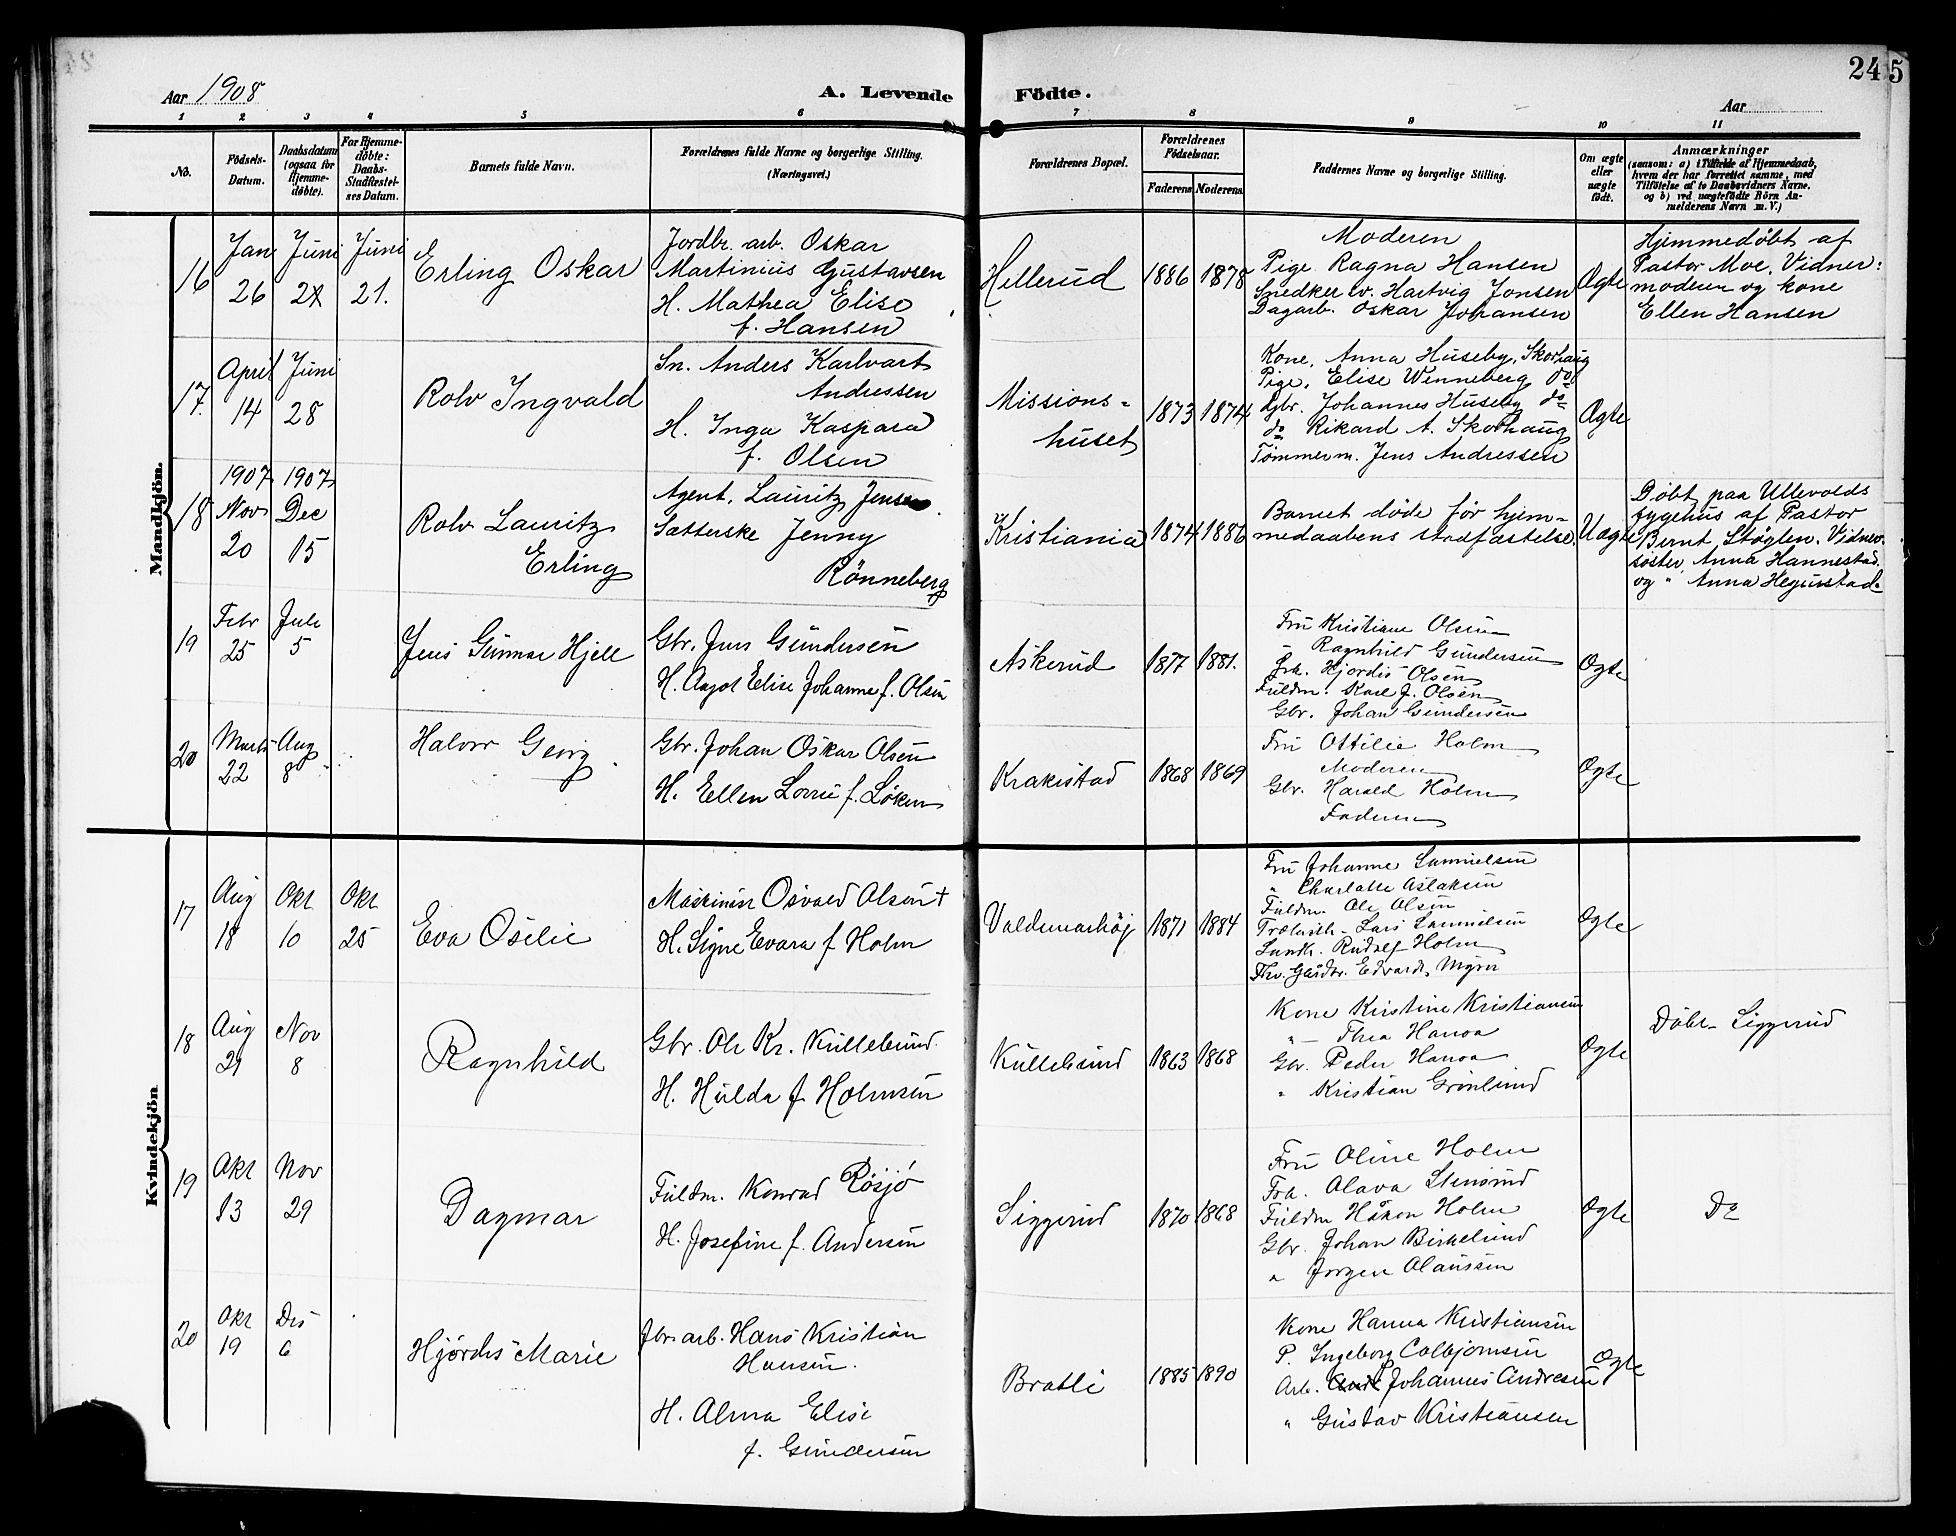 Aar 1908
A. Levende Födte.
24 5
Aar
1 2 3 4 5 6 7 8 9 10 11
No.
Födsels-
Datum.
Daabsdatum
(ogsaa for
Hjemme-
döbte).
For Hjemme-
döbte:
Daabs-
Stadfæstel-
ses Datum.
Barnets fulde Navn.
Forældrenes fulde Navne og borgerlige Stilling.
(Næringsvei.)
Forældrenes Bopæl.
Forældrenes
Födselsaar.
Faderens Moderens
Faddernes Navne og borgerlige Stilling.
Om ægte
eller
uægte
födt.
Anmærkninger
(saasom: a) i Tilfælde af Hjemmedaab,
hvem der har forrettet samme, med
Tilföielse af to Daabsvidners Navne.
og b) ved uægtefödte Börn An-
melderens Navn m. V.)
Mandkjön.
16
Jan
26
Juni
Juni
21.
Erling Oskar
Jordbr. arb. Oskar
Martinius Gustavsen
H. Mathea Elise
f. Hansen
Hellerud
1886 1878
Moderen
Pige Ragna Hansen
Snedker sv. Hartvig Jonsen
Dagarb. Oskar Johansen
Ægte
Hjemmedøbt af
Pastor Moe. Vidner:
moderen og kone
Ellen Hansen
17.
April
14
Juni
28
Rolv Ingvald
Sn. Anders Karlvart
Andressen
H. Inga Kaspara
f. Olsen
Missions-
huset
1873 1874
Kone, Anna Huseby, Skorhaug
Pige, Elise Wenneberg do
Gbr. Johannes Huseby do
do Rikard A. Skorhaug
Tømmerm. Jens Andressen
Ægte
18
1907
Nov
20
1907
Dec
15
Rolv Lauritz
Erling
Agent, Lauritz Jensen
Sætterske Jenny
Rönneberg
Kristiania
1874 1886
Barnet døde før hjem-
medaabens stadfæstelse.
Uægte
Døbt paa Ullevolds
sygehus af Pastor
Bernt Støylen. Vidner
søster Anna Hannestad
og " Anna Hegurstad.
19
Febr
25
Juli
5
Jens Gunnar Hjell
Gbr. Jens Gundersen
H. Aagot Elise Johanne f. Olsen
Askerud
1877 1881.
Fru Kristiane Olsen
- Ragnhild Gundersen
Frk. Hjordis Olsen
Fuldm. Karl J. Olsen
Gbr. Johan Gundersen
Ægte
20
Marts
22
Aug
8
Halvor Georg
Gbr. Johan Oskar Olsen
H. Ellen Lovise f. Løken
Krakistad
1868 1869
Fru Ottilie Holm
Moderen
Gbr. Harald Holm
Faderen
Ægte
Kvindekjön
17
Aug
18
Okt
10
Okt
25
Eva Osilie
Maskinist Osvald Olsen +
H. Signe Evara f Holm
Valdemarhøj
1871 1884
Fru Johanne Samuelsen
" Charlotte Aslaksen
Fuldm. Ole Olsen
Lars Samuelsen
Landh. Rudolf Holm
Fhv. Gårdbr. Edvard Myrer
Ægte
18
Aug
21
Nov
8
Ragnhild
Gbr. Ole Kr. Kullebund.
H. Hulda f Holmsen
Kullebund
1863 1868
Kone Kristine Kristiansen
" Thea Hanoa
Gbr. Peder Hanoa
" Kristian Grønlund
Ægte
Døbt - Siggerud
19
Okt
13
Nov
29
Dagmar
Fuldm. Konrad Røsjø
H. Josefine f. Andersen
Siggerud
1870 1868
Fru Oline Holm
Frk. Olava Stensrud
Fuldm Håkon Holm
Gbr. Johan Birkelund
" Jørgen Olaussen
Ægte
Do
20
Okt
19
Des
6
Hjørdis Marie
Jbr. arb. Hans Kristian
Hansen.
H. Alma Elise
f. Gundersen
Bratli
1885 1890
Kone Hanna Kristiansen
P. Ingeborg Colbjornsen
Arb. Johannes Andresen
" Gustav Kristiansen
Ægte